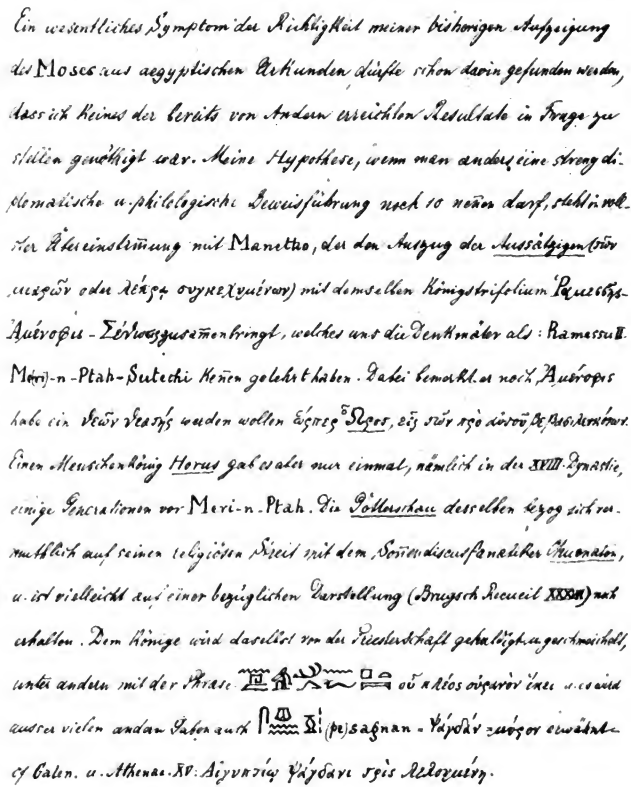 Ein wesentliches Symptom der Richtigkeit meiner bisherigen Aufzeigung
des Moses aus aegyptischen Urkunden, dürfte schon darin gefunden werden,
dass ich Keines der bereits von Andern erreichten Resultate in Frage zu
stellen genöthigt war. Meine Hypothese, wenn man anders eine streng di-
plomatische u. philologische Beweisführung noch so nen̄en darf, steht in voll-
ster Übereinstim̄ung mit Manetho, der den Auszug der Aussätzigen (τῶν
μιαρῶν oder λέπρᾳ συγκεχυμένων) mit demselben Königstrifolium Ῥαμεσσης-
Ἀμένοφις - Σέθως zusam̄enbringt, welches uns die Denkmäler als: Ramessu II.
M(eri)-n-Ptah-Sutechi Ken̄en gelehrt haben. Dabei bemerkt er noch, Ἀμένοφις
habe ein θεῶν θεατής werden wollen ὥσπερ Ὧρος, εἷς τῶν πρὸ αὐτοῦ βεβασιλευκότων.
Einen Menschenkönig Horus gab es aber nur einmal, nämlich in der XVIII. Dynastie,
einige Generationen vor Meri-n-Ptah. Die Götterschau desselben bezog sich ver-
muthlich auf seinen religiösen Streit mit dem Son̄endiscusfanatiker Chuenaten,
u. ist vielleicht auf einer bezüglichen Darstellung (Brugsch Recueil) noch
erhalten. Dem Könige wird daselbst von der Priesterschaft gehuldigt u. geschmeichelt,
unter andern mit der Phrase οὗ κλέος οὐρανὸν ἵκει u. es wird
ausser vielen andern Gaben auch (pe)sagnan = ψάγδαν = μύρον erwähnt
cf Galen. u. Athenae. XV: Αἰγυπτίῳ ψάγδανι τρὶς λελουμένη.